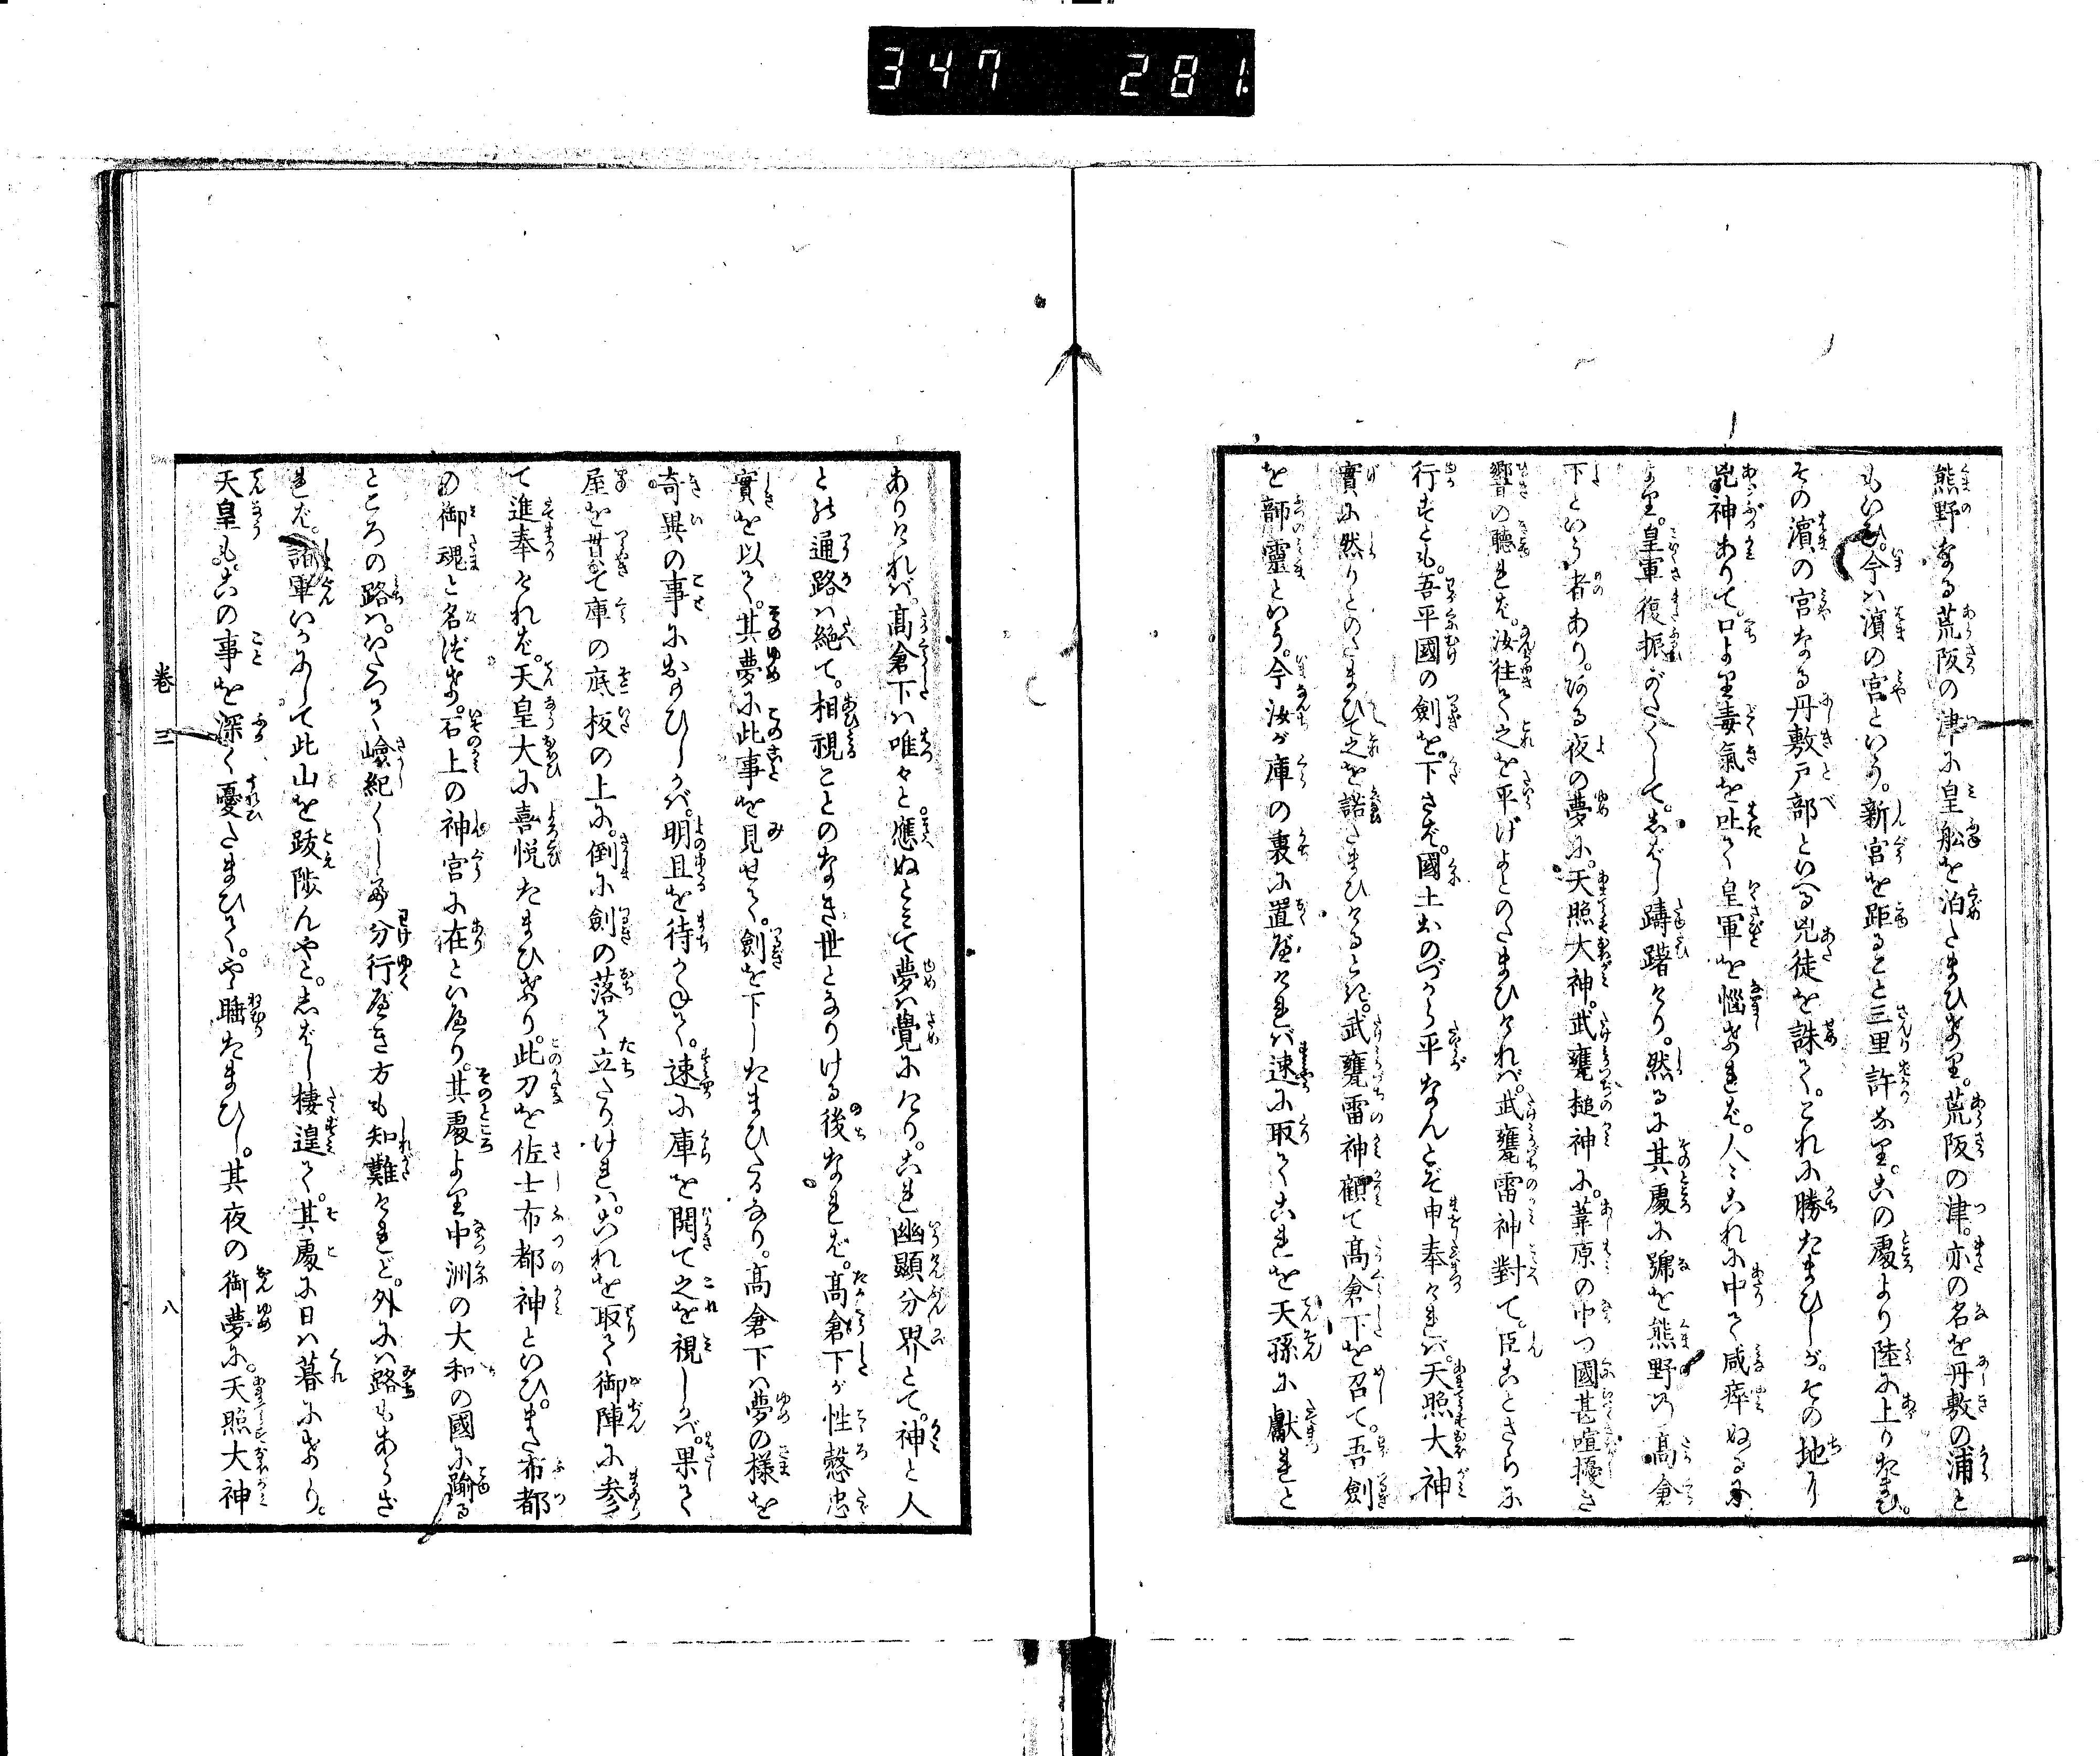 347 281
熊野なる荒阪の津に皇舩を泊たまひけり。荒阪の津。亦の名を丹敷の浦と
もいひ。今ハ濱の宮といふ。新宮を距ること三里許なり。この處より陸に上りたまひ。
その濱の宮なる丹敷戸部といへる兇徒を誅て。これに勝たまひしが。その地に
兇神ありて。口より毒氣を吐て皇軍を惱ければ。人々これに中て咸瘁ぬるに
より。皇軍復振がたくして。しばし躊躇けり。然るに其處に号を熊野の高倉
下といふ者あり。ある夜の夢に。天照大神。武甕槌神に。葦原の中つ國甚喧擾き
響の聴れば。汝往て之を平げよとのたまひければ。武甕雷神對て。臣ことさらに
行ずとも。吾平國の劍を。下さば。國土おのづから平なんとぞ申奉ければ。天照大神
實に然りとのたまひて之を諾たまひけるとぞ。武甕雷神顧て高倉下を召て。吾劍
を韴靈といふ。今汝が庫の裏に置べければ速に取てこれを天孫に獻れと
ありければ。高倉下ハ唯々と應ぬとみて夢ハ覺にけり。これ幽顯分界とて。神と人
と の通路ハ絶て。相視ことのなき世となりける後なれば。高倉下が性慤忠
實を以て。其夢に此事を見せて。劍を下したまひたるなり。高倉下ハ夢の樣を
奇異の事におもひしかば。明旦を待かねて。速に庫を開て之を視しかば。果して
屋を毌て庫の底板の上に。倒に劍の落て立たりければ。これを取て御陣に参
て進奉ければ。天皇大に喜悦たまひけり。此刀を佐士布都神といひ。また布都
の御魂と名づけ。石上の神宮に在といへり。其處より中洲の大和の國に踰る
ところの路ハ。いたつて嶮絶くして分行べき方も知難ければ。外にハ路もあらざ
れば。諸軍いかにして此山を跋渉んやと。しばし棲遑て。其處に日ハ暮にけり。
天皇も。この事を深く憂たまひて。やゝ睡たまひし。其夜の御夢に。天照大神
巻三 八